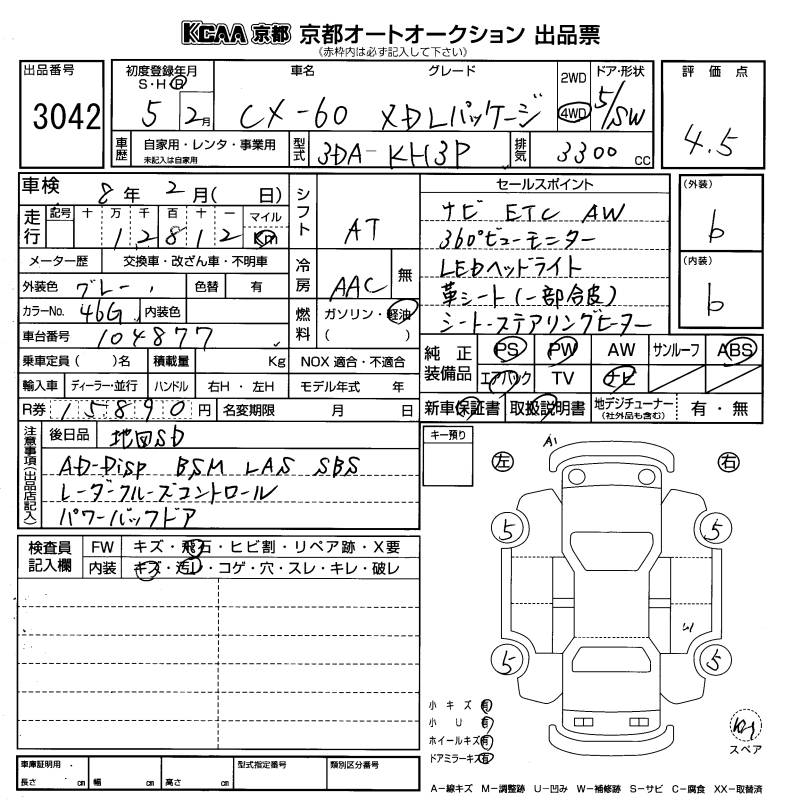 KCAA 京都 京都オートオークション 出品票
(赤枠内は必ず記入して下さい)
出品番号
3042
初度登録年月
S・H・R
5 2月
車名
CX-60
グレード
XDLパッケージ
2WD
4WD
ドア・形状
5/SW
評価点
4.5
車歴
自家用・レンタ・事業用
未記入は自家用
型式
3DA-KH3P
排気
3300 CC
車検
8年 2月( 日)
走行
記号 十 万 千 百 十 一 マイル
1 2 8 1 2 Km
シフト
AT
セールスポイント
ナビ ETC AW
360°ビューモニター
LEDヘッドライト
革シート(一部合皮)
シート・ステアリングヒーター
(外装)
b
(内装)
b
メーター歴 交換車・改ざん車・不明車
外装色 グレー 色替 有
冷房
AAC 無
カラーNo. 46G 内装色
燃料
ガソリン・軽油
( )
車台番号 104877
乗車定員 ( )名 積載量 Kg NOX 適合・不適合
輸入車 ディーラー・並行 ハンドル 右H・左H モデル年式 年
R券 15890円 名変期限 月 日
純正装備品
PS PW AW サンルーフ ABS
エアバック TV ナビ
新車保証書 取扱説明書 地デジチューナー(社外品も含む) 有・無
注意事項(出品店記入)
後日品 地図SD
AD-Disp BSM LAS SBS
レーダークルーズコントロール
パワーバックドア
キー預り
A1
左 右
5 5
5 5
検査員記入欄
FW キズ・飛石・ヒビ割・リペア跡・X要
内装 キズ・汚レ・コゲ・穴・スレ・キレ・破レ
小キズ 有
小U 有
ホイールキズ 有
ドアミラーキズ 有
スペア
車庫証明用
長さ cm 幅 cm 高さ cm
型式指定番号
類別区分番号
A-線キズ M-調整跡 U-凹み W-補修跡 S-サビ C-腐食 XX-取替済